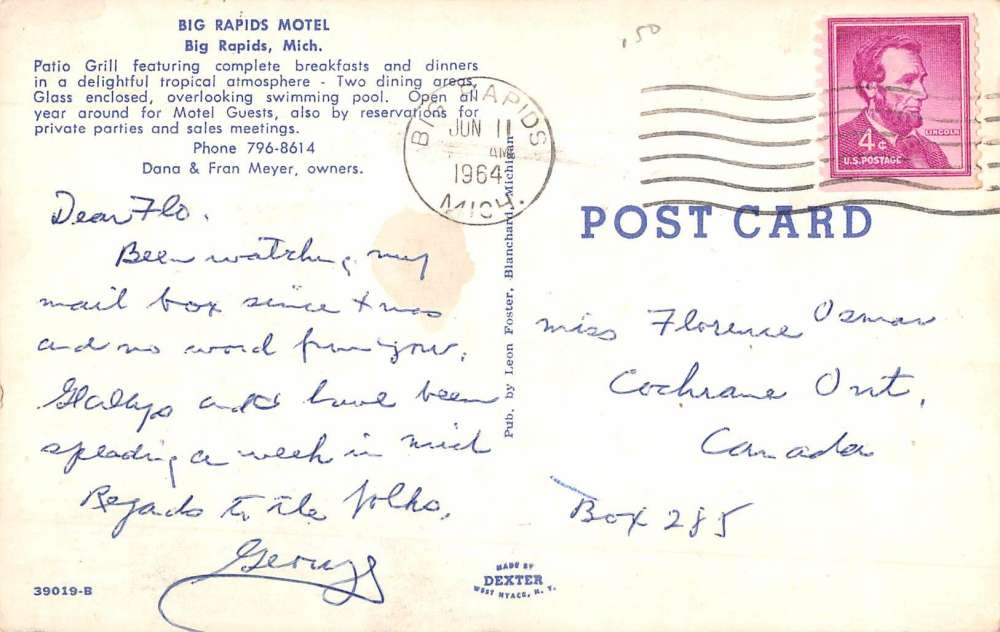 BIG RAPIDS MOTEL
Big Rapids, Mich.
Patio Grill featuring complete breakfasts and dinners
in a delightful tropical atmosphere - Two dining areas,
Glass enclosed, overlooking swimming pool. Open all
year around for Motel Guests, also by reservations for
private parties and sales meetings.
Phone 796-8614
Dana & Fran Meyer, owners.
.50
BIG RAPIDS
JUN 11
AM
1964
MICH.
LINCOLN
4¢
U.S. POSTAGE
Dear Flo.
Been watching my
mail box since Xmas
and no word from you.
Gladys and I have been
spending a week in Mich
Regards to the folks,
George
Pub. by Leon Foster, Blanchard, Michigan
POST CARD
Miss Florence Osmar
Cochrane Ont.
Canada
Box 285
39019-B
MADE BY
DEXTER
WEST NYACK, N. Y.